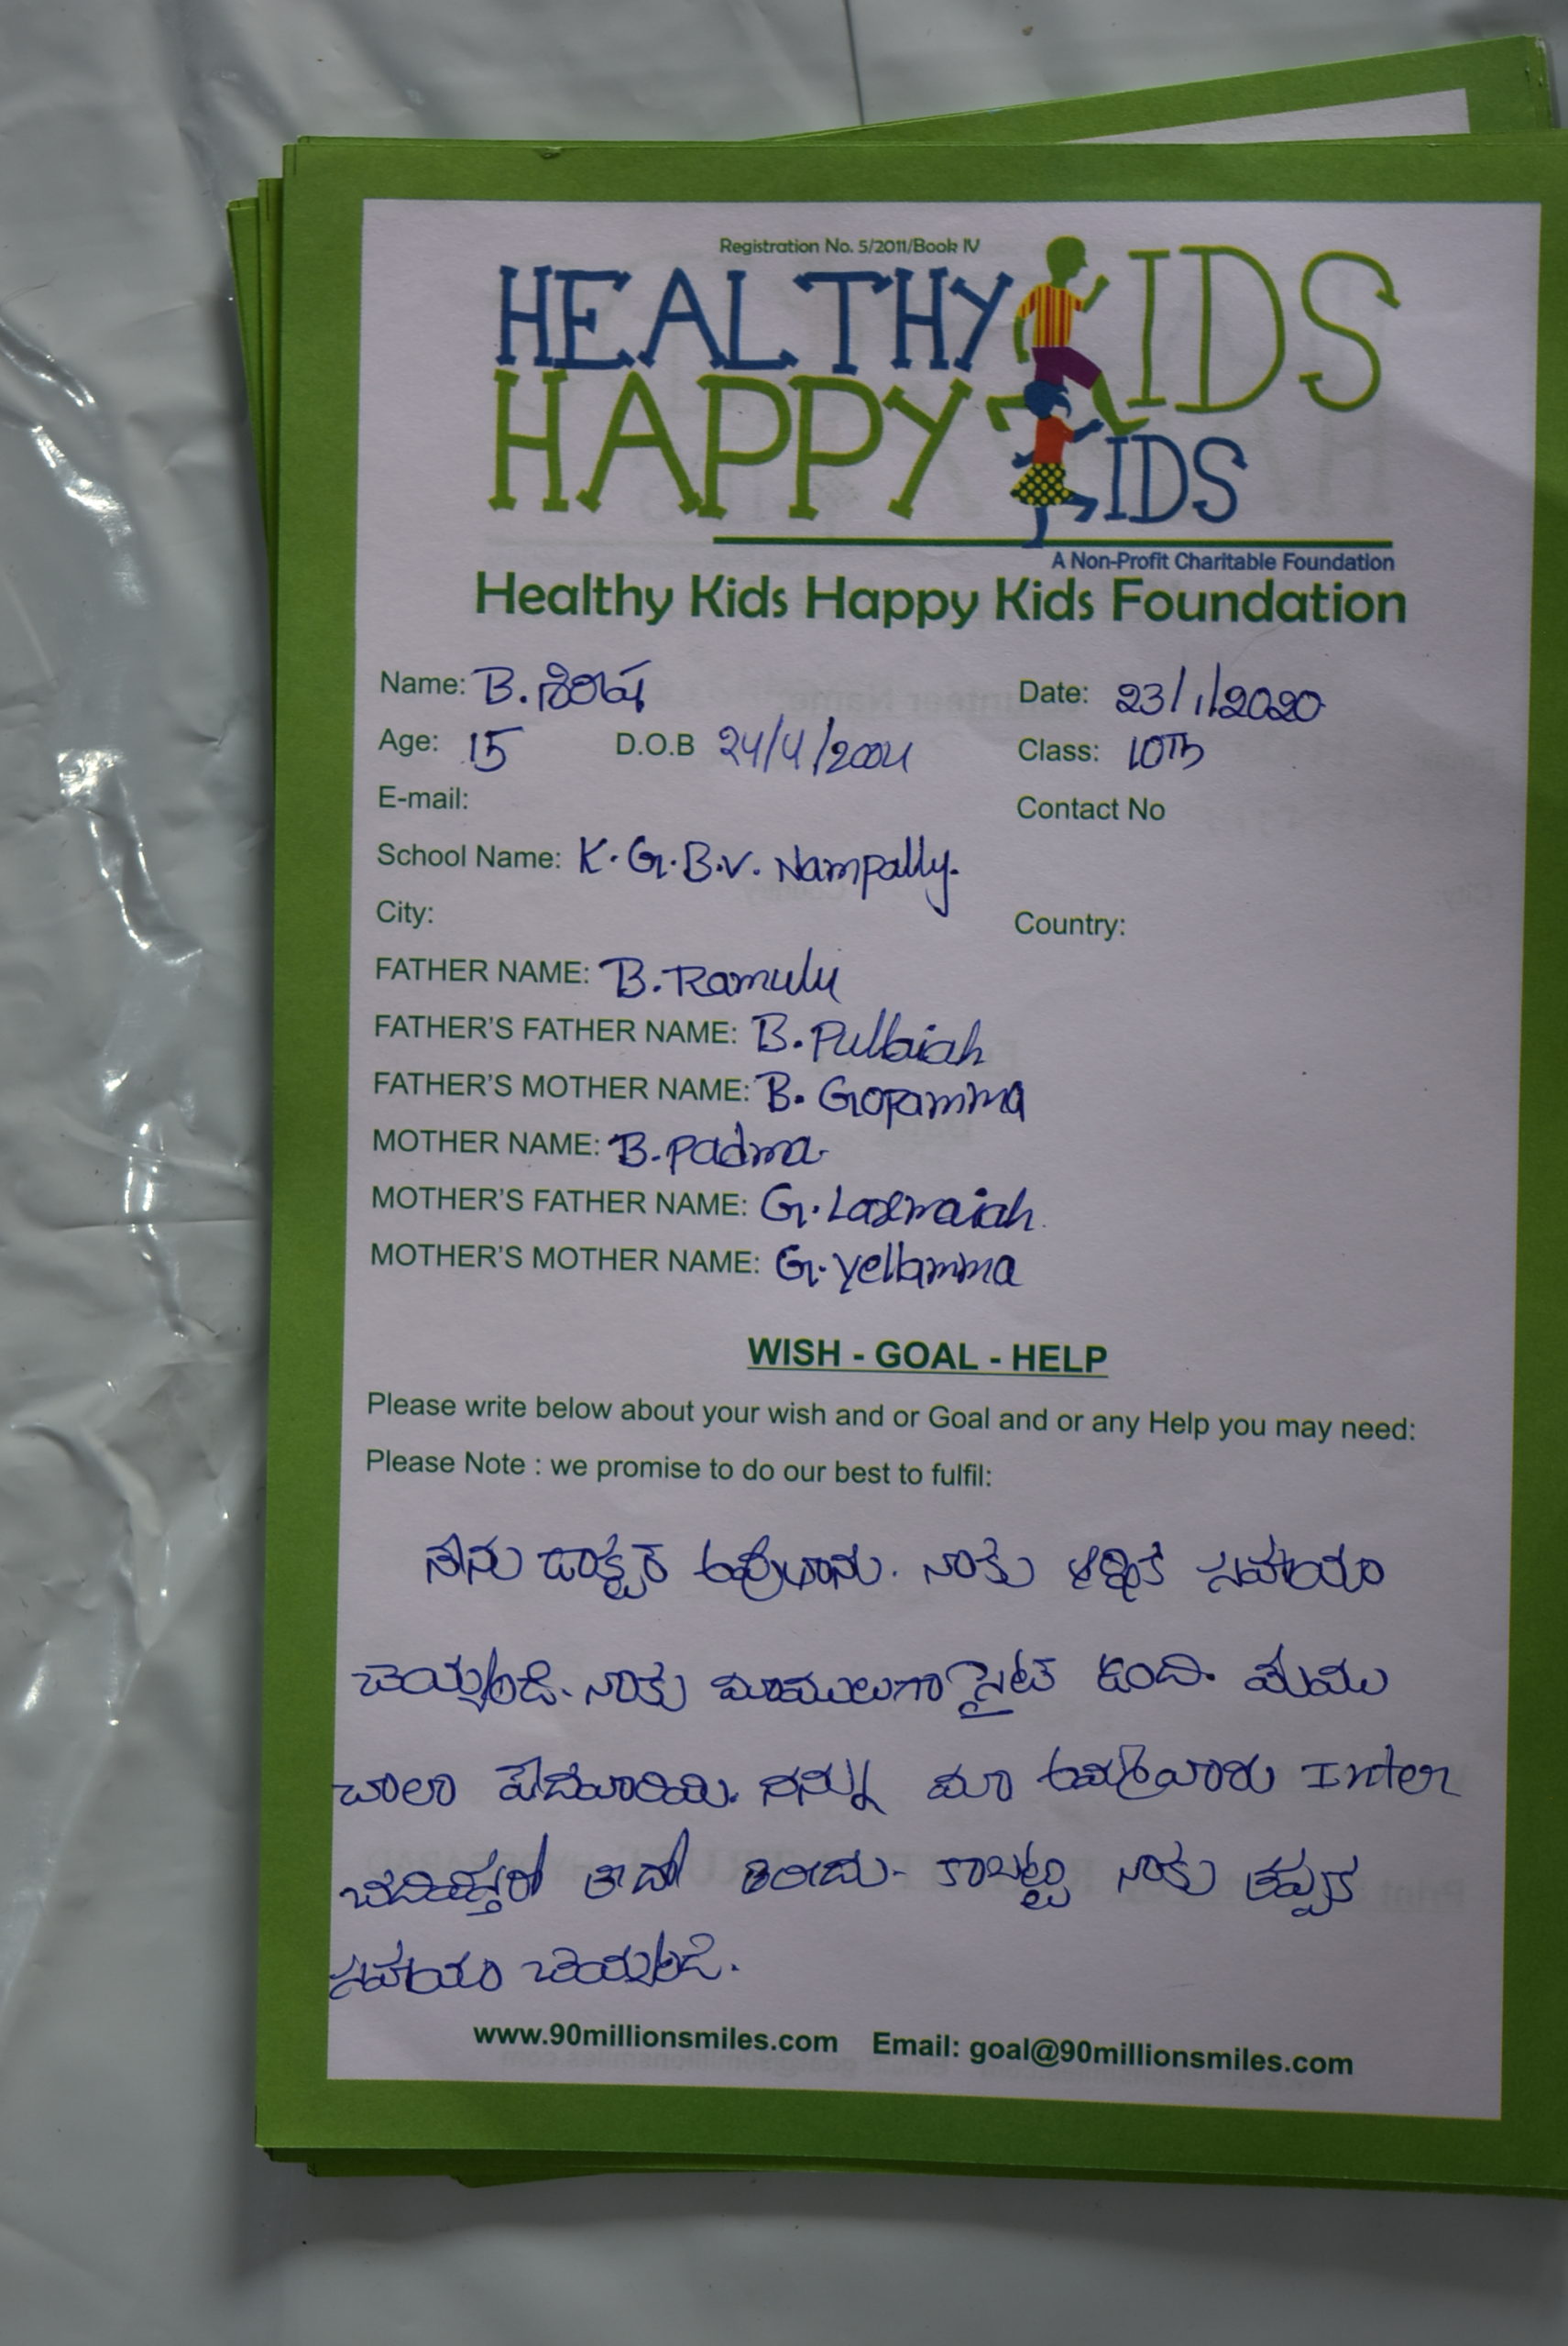 Registration No. 5/2011/Book IV
HEALTHY KIDS
HAPPY KIDS
A Non-Profit Charitable Foundation
Healthy Kids Happy Kids Foundation
Name: B. శిరీష Date: 23/1/2020
Age: 15 D.O.B 24/4/2004 Class: 10Th
E-mail: Contact No
School Name: K.G.B.V. Nampally.
City: Country:
FATHER NAME: B. Ramulu
FATHER'S FATHER NAME: B. Pullaiah
FATHER'S MOTHER NAME: B. Gopamma
MOTHER NAME: B. Padma
MOTHER'S FATHER NAME: G. Laxmaiah
MOTHER'S MOTHER NAME: G. Yellamma
WISH - GOAL - HELP
Please write below about your wish and or Goal and or any Help you may need:
Please Note : we promise to do our best to fulfil:
నేను డాక్టర్ అవుతాను. నాకు ఆర్థిక సహాయం
చెయ్యండి. నాకు మామూలుగా సైట్ ఉంది. మేము
చాలా పేదవారిమి. నన్ను మా అమ్మవారు Inter
చదివిస్తరో లేదో తెలీదు. కాబట్టి నాకు తప్పక
సహాయం చెయ్యండి.
www.90millionsmiles.com Email: goal@90millionsmiles.com